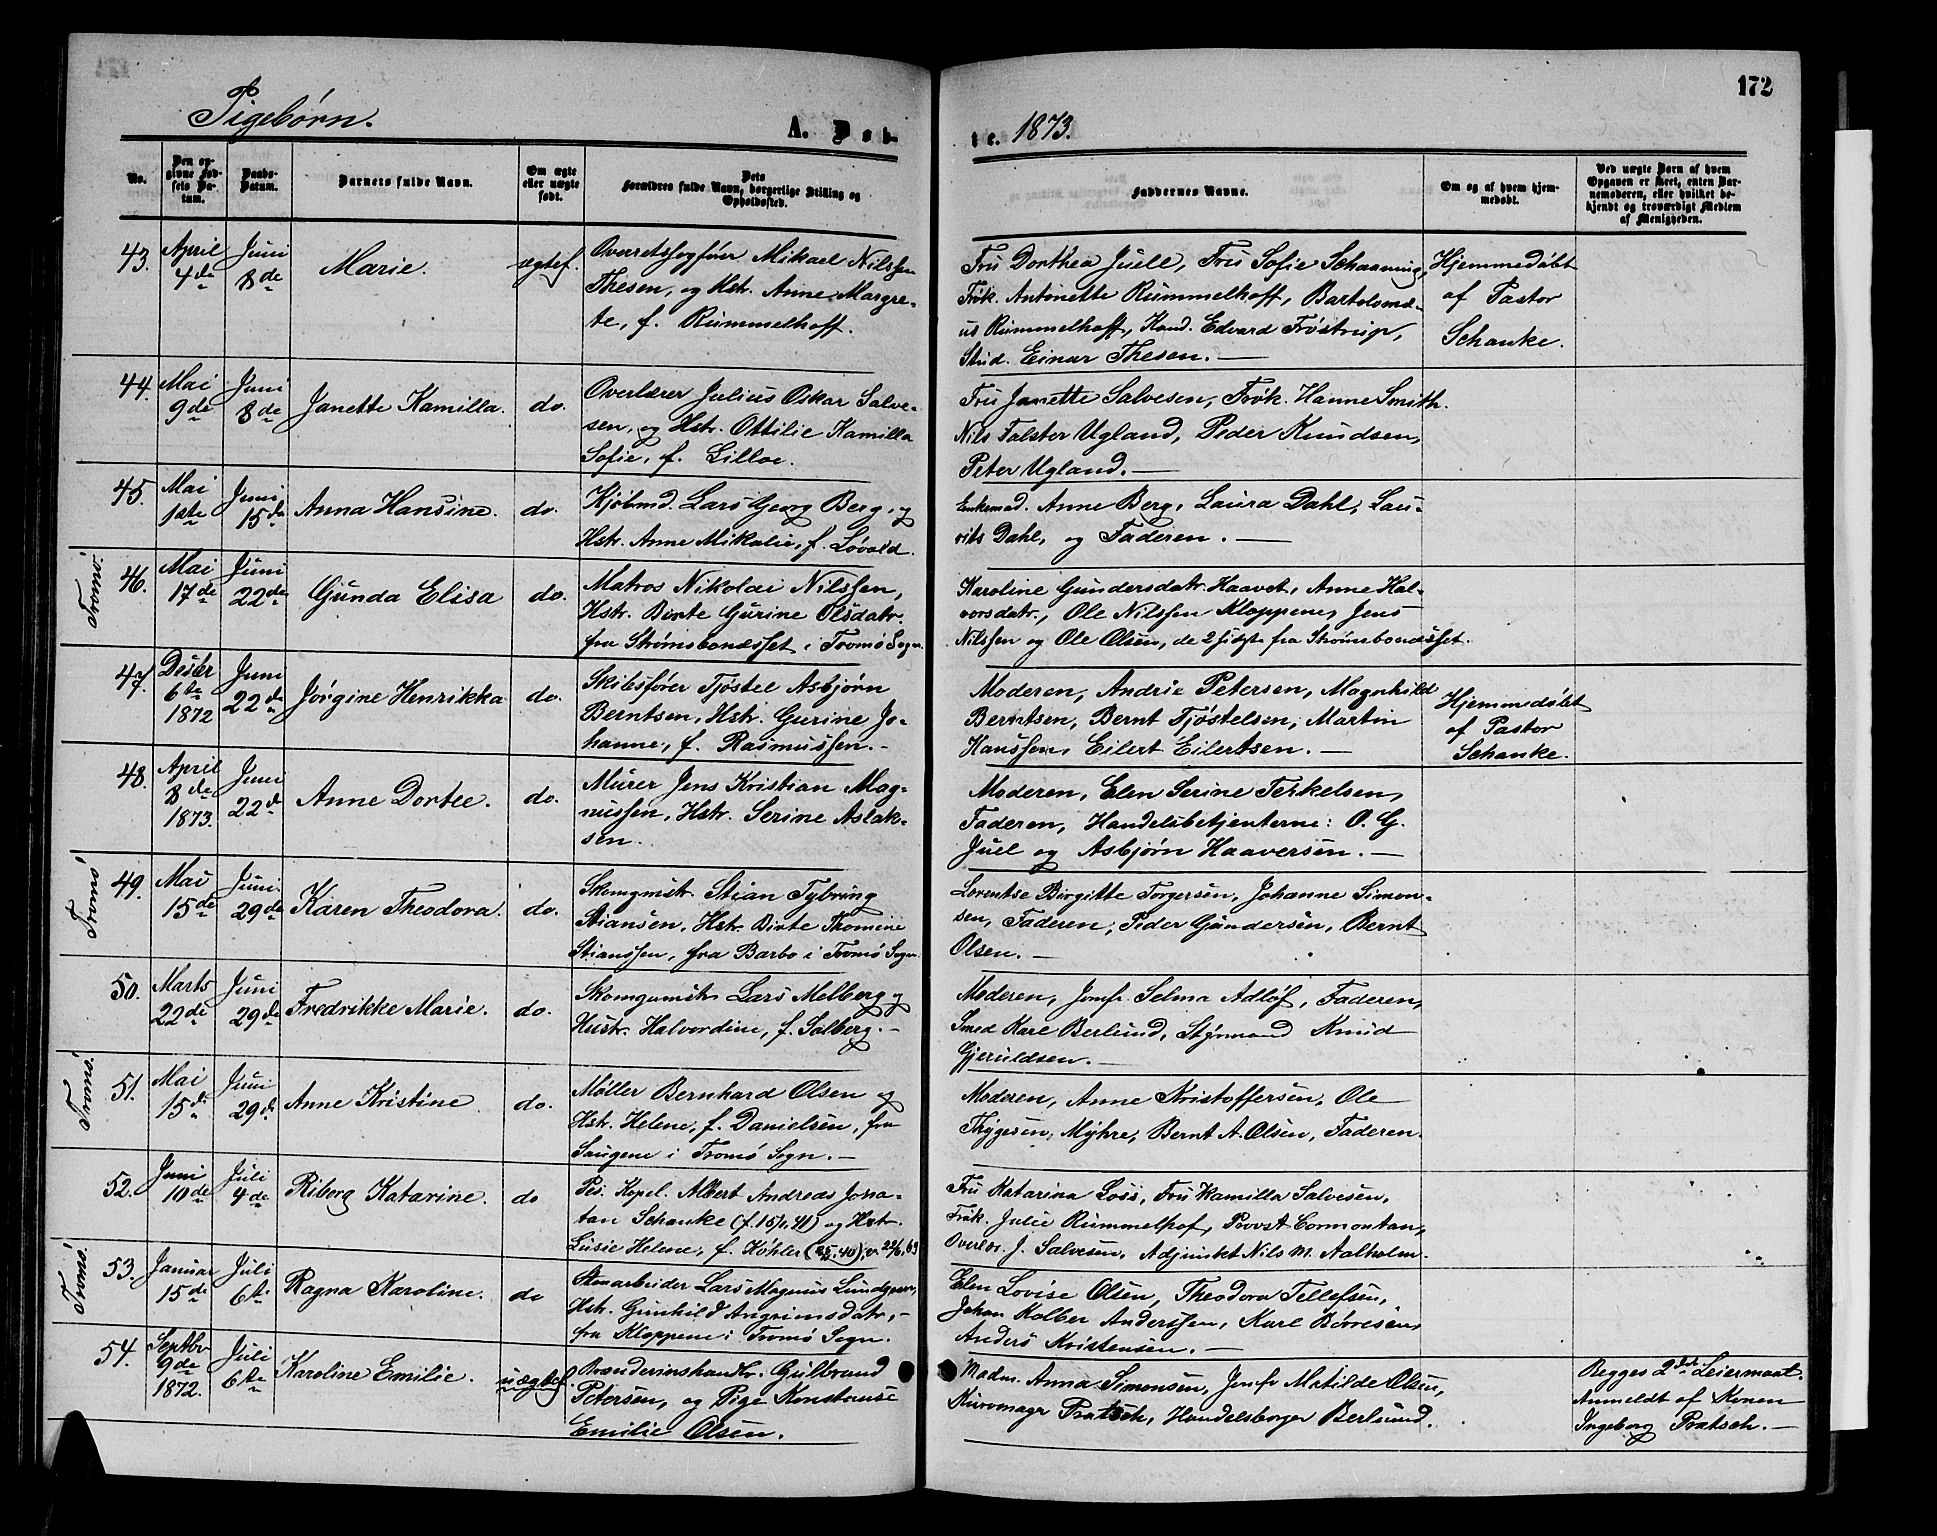 172
Pigebørn.
A. Døb-
te. 1873.
No.
Den op-
givne Fød-
sels Da-
tum.
Daabs-
Datum.
Barnets fulde Navn.
Om ægte
eller uægte
født.
Dets
Forældres fulde Navn, borgerlige Stilling og
Opholdssted.
Faddernes Navne.
Om og af hvem hjem-
medøbt.
Ved uægte Børn af hvem
Opgaven er skeet, enten Bar-
nemoderen, eller hvilket be-
kjendt og troværdigt Medlem
af Menigheden.
43.
April
4de
Juni
8de
Marie.
ægtef.
Overretssagfører Mikael Nilssen
Thesen, og Hstr. Anne Margre-
te, f. Rummelhoff.
Fru Dorthea Juell, Fru Sofie Schanning,
Frøk. Antonette Rummelhoff, Bartolomæ-
us Rummelhoff, Kand. Edvard Frøstrup,
Stud. Einar Thesen. —
Hjemmedøbt
af Pastor
Schanke.
44.
Mai
9de
Juni
8de
Janette Kamilla.
do.
Overlærer Julius Oskar Salve-
sen, og Hstr. Ottilie Kamilla
Sofie, f. Lilloe.
Fru Janette Salvesen, Frøk. Hanne Smith.
Nils Falster Ugland, Peder Knudsen,
Peter Ugland. —
45.
Mai
1ste
Juni
15de
Anna Hansine.
do.
Kjøbmd. Lars Georg Berg, og
Hstr. Anne Mikalie, f. Løvold.
Enkemad. Anne Berg, Laura Dahl, Lau-
rits Dahl, og Faderen. —
Tromø.
46.
Mai
17de
Juni
22de
Gunda Elisa
do.
Matros Nikolai Nilssen,
Hstr. Birte Gurine Olsdatr.
fra Strømsbondsset i Tromø Sogn.
Karoline Gundersdatr. Haavet, Anne Hal-
vorsdatr., Ole Nilssen Kloppene, Jens
Nilssen og Ole Olsen, de 2 sidste fra Strømsbondsset.
47.
Desbr
6te
1872
Juni
22de
Jørgine Henrikka
do.
Skibsfører Tjøstel Asbjørn
Berntsen, Hstr. Gurine Jo-
hanne, f. Rasmussen. —
Moderen, Andrie Petersen, Magnhild
Berntsen, Bernt Tjøstelsen, Martin
Hanssen, Eilert Eilertsen. —
Hjemmedøbt
af Pastor
Schanke.
48.
April
8de
1873.
Juni
22de
Anne Dortee.
do.
Murer Jens Kristian Mag-
nussen, Hstr. Serine Aslak-
sen.
Moderen, Elen Serine Terkelsen,
Faderen, Handelsbetjenterne: O. G.
Juel og Asbjørn Haaversen. —
Tromø
49.
Mai
15de
Juni
29de
Karen Theodora.
do.
Skomgmstr. Stian Tybring
Stiansen, Hstr. Birte Thomine
Stianssen, fra Barbo i Tromø Sogn.
Lorentse Birgitte Torgersen, Johanne Simon-
sen, Faderen, Peder Gundersen, Bernt
Olsen. —
50.
Marts
22de
Juni
29de
Fredrikke Marie.
do.
Skomgmstr. Lars Melberg og
Hustr. Halvordine, f. Solberg. —
Moderen, Jomfr. Selma Adløf, Faderen,
Smed Karl Berlund, Styrmand Knud
Gjeruldsen. —
Tromø.
51.
Mai
15de
Juni
29de
Anne Kristine
do.
Møller Bernhard Olsen og
Hstr. Helene, f. Danielsen, fra
Saugene i Tromø Sogn. —
Moderen, Anne Kristoffersen, Ole
Thygesen, Myhre, Bernt A. Olsen, Faderen.
52.
Juni
10de
Juli
4de
Riborg Katarine.
do
Pes. Kapel. Albert Andreas Jona-
tan Schanke (f. 15/1. 41) og Hstr.
Lusie Helene, f. Køhler
Fru Katarina Loss, Fru Kamilla Salvesen,
Frøk. Julie Rummelhof, Provst Cormontan,
Overlr. J. Salvesen, Adjunkt Nils M. Aalholm.
Tromø.
53.
Januar
15de
Juli
6te
Ragna Karoline.
do
Stenarbeider Lars Magnus Lundgren,
Hstr. Gunhild Angrimsdatr, —
fra Kloppene i Tromø Sogn.
Elen Lovise Olsen, Theodora Tellefsen,
Johan Kolber Anderssen, Karl Børresen,
Anders Kristensen. —
54.
Septbr
9de
1872.
Juli
6te
Karoline Emilie.
uægtef.
Brænderinshandlr. Gulbrand
Petersen, og Pige Konstanse
Emilie Olsen.
Madm. Anna Simonsen, Jomfr Matilde Olsen,
Kurvmagr Pratsch, Handelsborger Berlsund.
Begges 2det Leiermaal.
Anmeldt af Konen
Ingeborg Pratsch. —